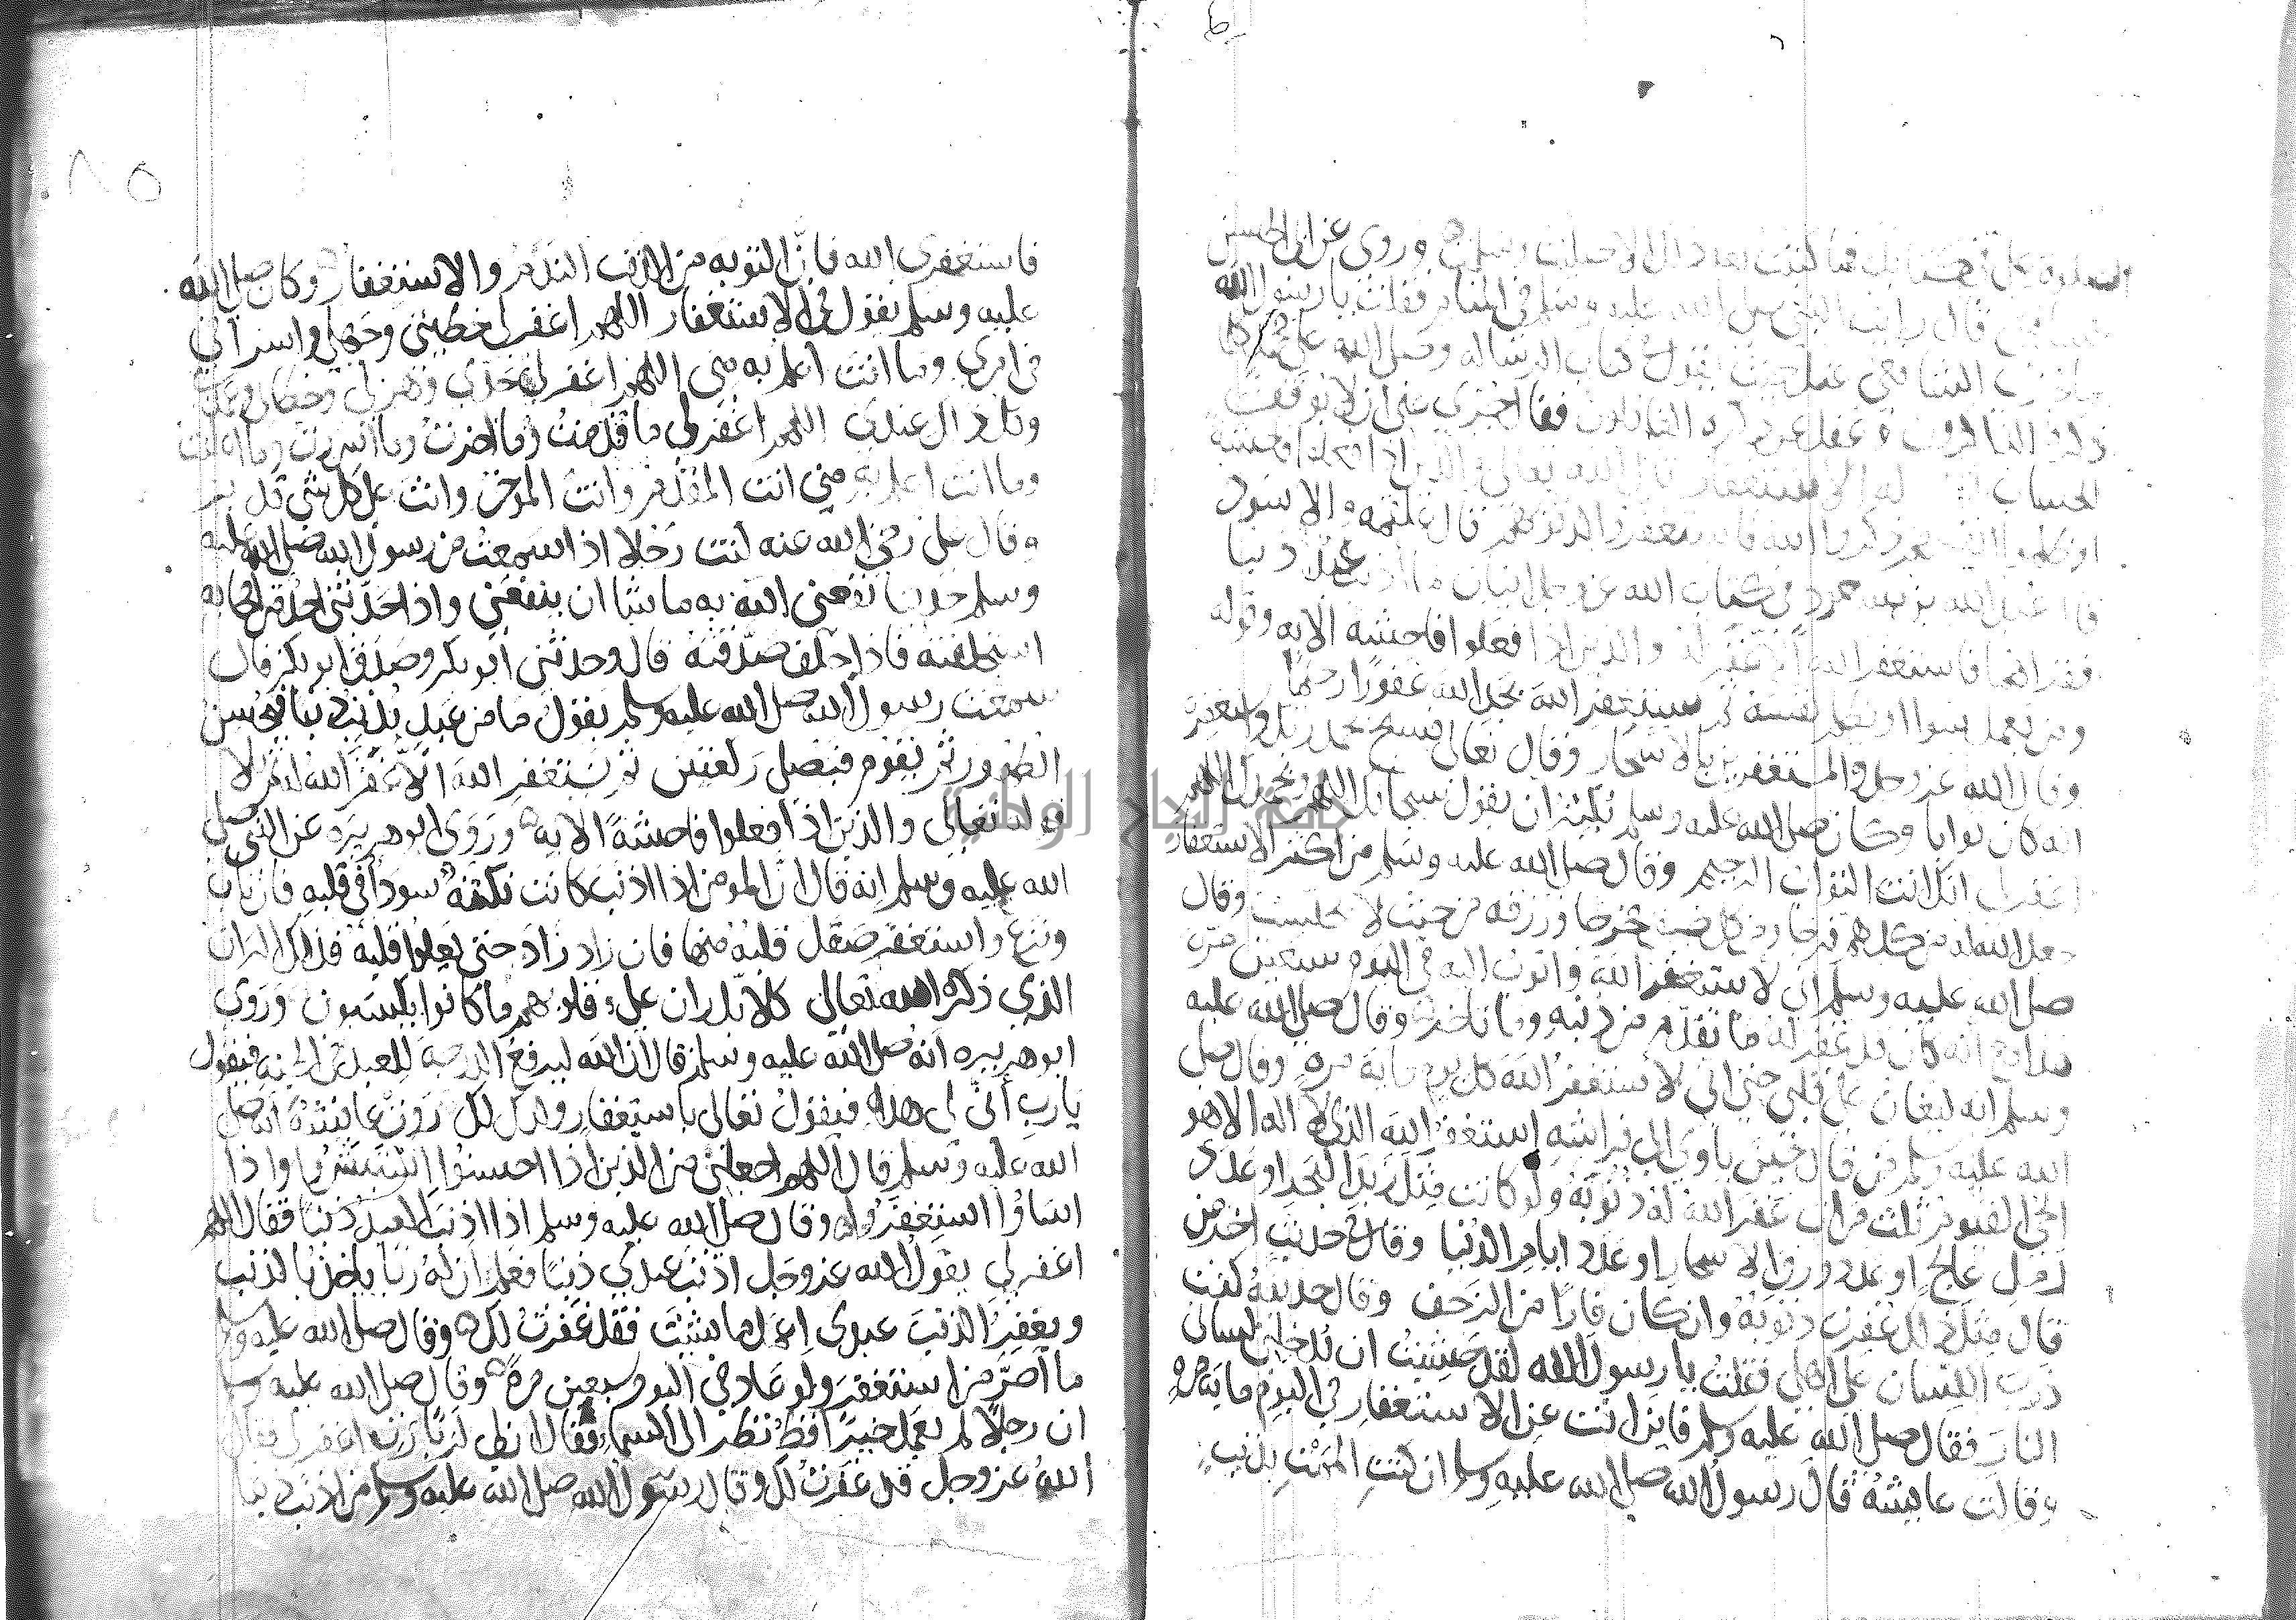 وروي عن ابي الحسن
قال رايت النبي صلى الله عليه وسلم في المنام فقلت يا رسول الله
الشافعي عنك حيث يقول في كتاب الرسالة وصلى الله على محمد كلما
ذكره الذاكرون وغفل عن ذكره الغافلون فقال جزي عني انه لا يوقف
للحساب الاستغفار قال الله تعالى والذين اذا فعلوا فاحشة
او ظلموا انفسهم ذكروا الله فاستغفروا لذنوبهم قال علقمة والاسود
قال عبد الله بن مسعود في كتاب الله عز وجل ايتان ما اذنب عبد ذنبا
فقراهما فاستغفر الله الا غفر له والذين اذا فعلوا فاحشة الاية وقوله
ومن يعمل سوءا او يظلم نفسه ثم يستغفر الله يجد الله غفورا رحيما
وقال الله عز وجل والمستغفرين بالاسحار وقال تعالى فسبح بحمد ربك واستغفره
انه كان توابا وكان صلى الله عليه وسلم يكثر ان يقول سبحانك اللهم وبحمدك اللهم
اغفر لي انك انت التواب الرحيم وقال صلى الله عليه وسلم من اكثر الاستغفار
جعل الله له من كل هم فرجا ومن كل ضيق مخرجا ورزقه من حيث لا يحتسب وقال
صلى الله عليه وسلم اني لاستغفر الله واتوب اليه في اليوم سبعين مرة
هذا مع انه كان قد غفر له ما تقدم من ذنبه وما تاخر وقال صلى الله عليه
وسلم انه ليغان على قلبي حتى اني لاستغفر الله كل يوم ماية مرة وقال صلى
الله عليه وسلم من قال حين ياوي الى فراشه استغفر الله الذي لا اله الا هو
الحي القيوم ثلاث مرات غفر الله له ذنوبه ولو كانت مثل زبد البحر او عدد
رمل عالج او عدد ورق الاشجار او عدد ايام الدنيا وقال في حديث اخر من
قال مثل ذلك غفرت ذنوبه وان كان فارا من الزحف وقال حذيفة كنت
ذرب اللسان على اهلي فقلت يا رسول الله لقد خشيت ان يدخلني لساني
النار فقال صلى الله عليه وسلم فاين انت عن الاستغفار في اليوم ماية مرة
وقالت عايشة قال رسول الله صلى الله عليه وسلم ان كنت الممت بذنب
فاستغفري الله فان التوبه من الذنب الندم والاستغفار وكان صلى الله
عليه وسلم يقول في الاستغفار اللهم اغفر لي خطيئتي وجهلي واسرافي
في امري وما انت اعلم به مني اللهم اغفر لي جدي وهزلي وخطاي وعمدي
وكل ذلك عندي اللهم اغفر لي ما قدمت وما اخرت وما اسررت وما اعلنت
وما انت اعلم به مني انت المقدم وانت الموخر وانت على كل شي قدير
وقال علي رضي الله عنه كنت رجلا اذا سمعت من رسول الله صلى الله عليه
وسلم حديثا نفعني الله به ما شا ان ينفعني واذا حدثني احد من اصحابه
استحلفته فاذا حلف صدقته قال وحدثني ابو بكر وصدق ابو بكر قال
سمعت رسول الله صلى الله عليه وسلم يقول ما من عبد يذنب ذنبا فيحسن
الطهور ثم يقوم فيصلي ركعتين ثم يستغفر الله الا غفر الله له ثم تلا
قوله تعالى والذين اذا فعلوا فاحشة الاية وروى ابو هريره عن النبي صلى
الله عليه وسلم انه قال ان المومن اذا اذنب كانت نكتة سودا في قلبه فان تاب
ونزع واستغفر صقل قلبه منها فان زاد زاد حتى يعلوا قلبه فذلك الران
الذي ذكره الله تعالى كلا بل ران على قلوبهم ما كانوا يكسبون وروى
ابو هريره انه صلى الله عليه وسلم قال ان الله ليرفع الدرجة للعبد في الجنة فيقول
يا رب انى لي هذا فيقول تعالى باستغفار ولدك لك روت عايشة انه صلى
الله عليه وسلم قال اللهم اجعلني من الذين اذا احسنوا استبشروا واذا
اساؤا استغفروا وقال صلى الله عليه وسلم اذا اذنب العبد ذنبا فقال اللهم
اغفر لي يقول الله عز وجل اذنب عبدي ذنبا فعلم ان له ربا ياخذ بالذنب
ويغفر الذنب عبدي اعمل ما شيت فقد غفرت لك وقال صلى الله عليه وسلم
ما اصر من استغفر ولو عاد في اليوم سبعين مرة وقال صلى الله عليه وسلم
ان رجلا لم يعمل خيرا قط نظر الى السماء فقال ان لي ربا يا رب اغفر لي فقال
الله عز وجل قد غفرت لك وقال رسول الله صلى الله عليه وسلم من اذنب ذنبا
جامعة النجاح الوطنية